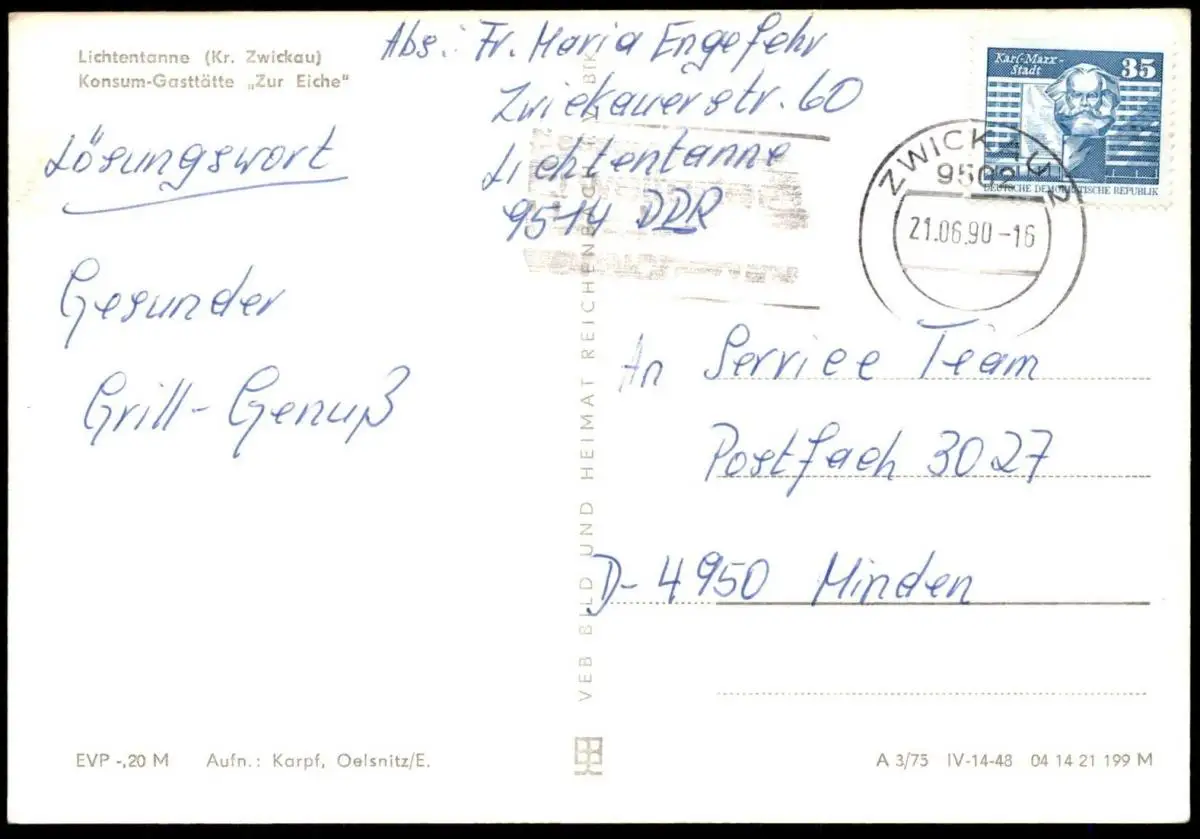 Lichtentanne (Kr. Zwickau)
Konsum-Gasttätte „Zur Eiche"
Abs.: Fr. Maria Engefehr
Zwickauerstr. 60
Lichtentanne
9514 DDR
Karl-Marx-
Stadt
35
DEUTSCHE DEMOKRATISCHE REPUBLIK
ZWICKAU 2
9502
21.06.90-16
Lösungswort
Gesunder
Grill-Genuß
An Service Team
Postfach 3027
D-4950 Minden
VEB BILD UND HEIMAT REICHENBACH
EVP -,20 M
Aufn.: Karpf, Oelsnitz/E.
A 3/75 IV-14-48 04 14 21 199 M